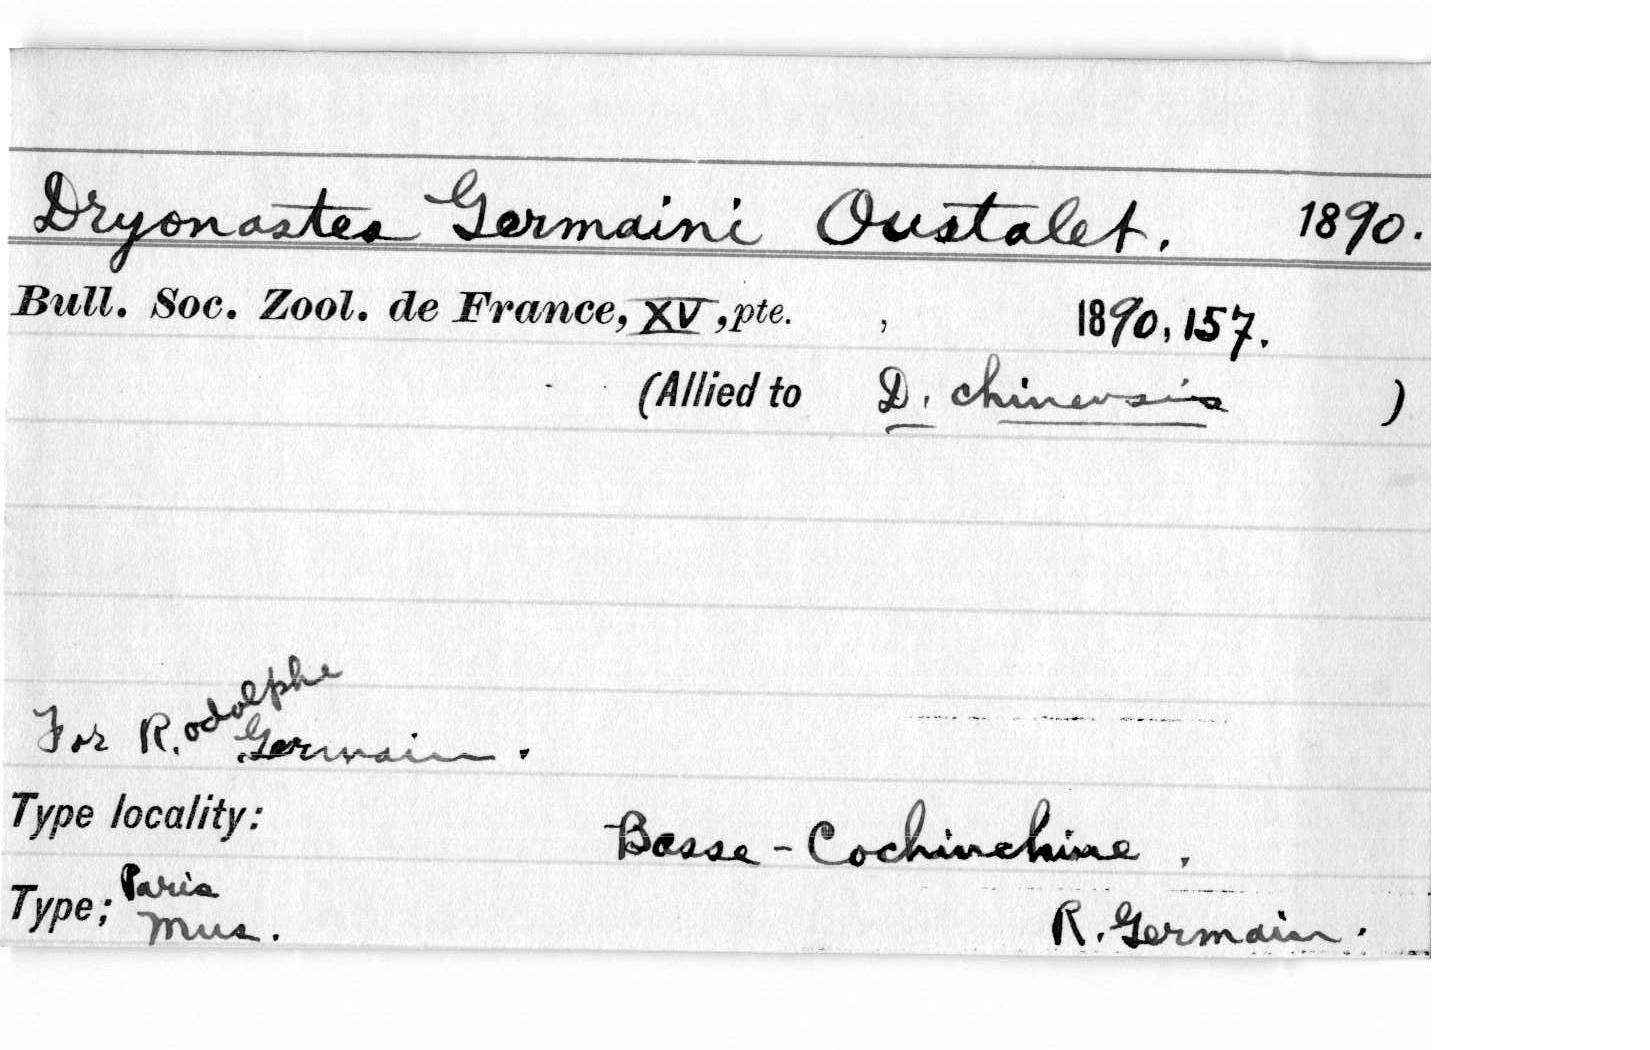 Dryonastes Germaini Oustalet. 1890.
Bull. Soc. Zool. de France, XV, pte. , 1890, 157.
(Allied to D. chinensis )
For R.odolphe Germain.
Type locality: Basse-Cochinchine.
Type; Paris Mus. R. Germain.